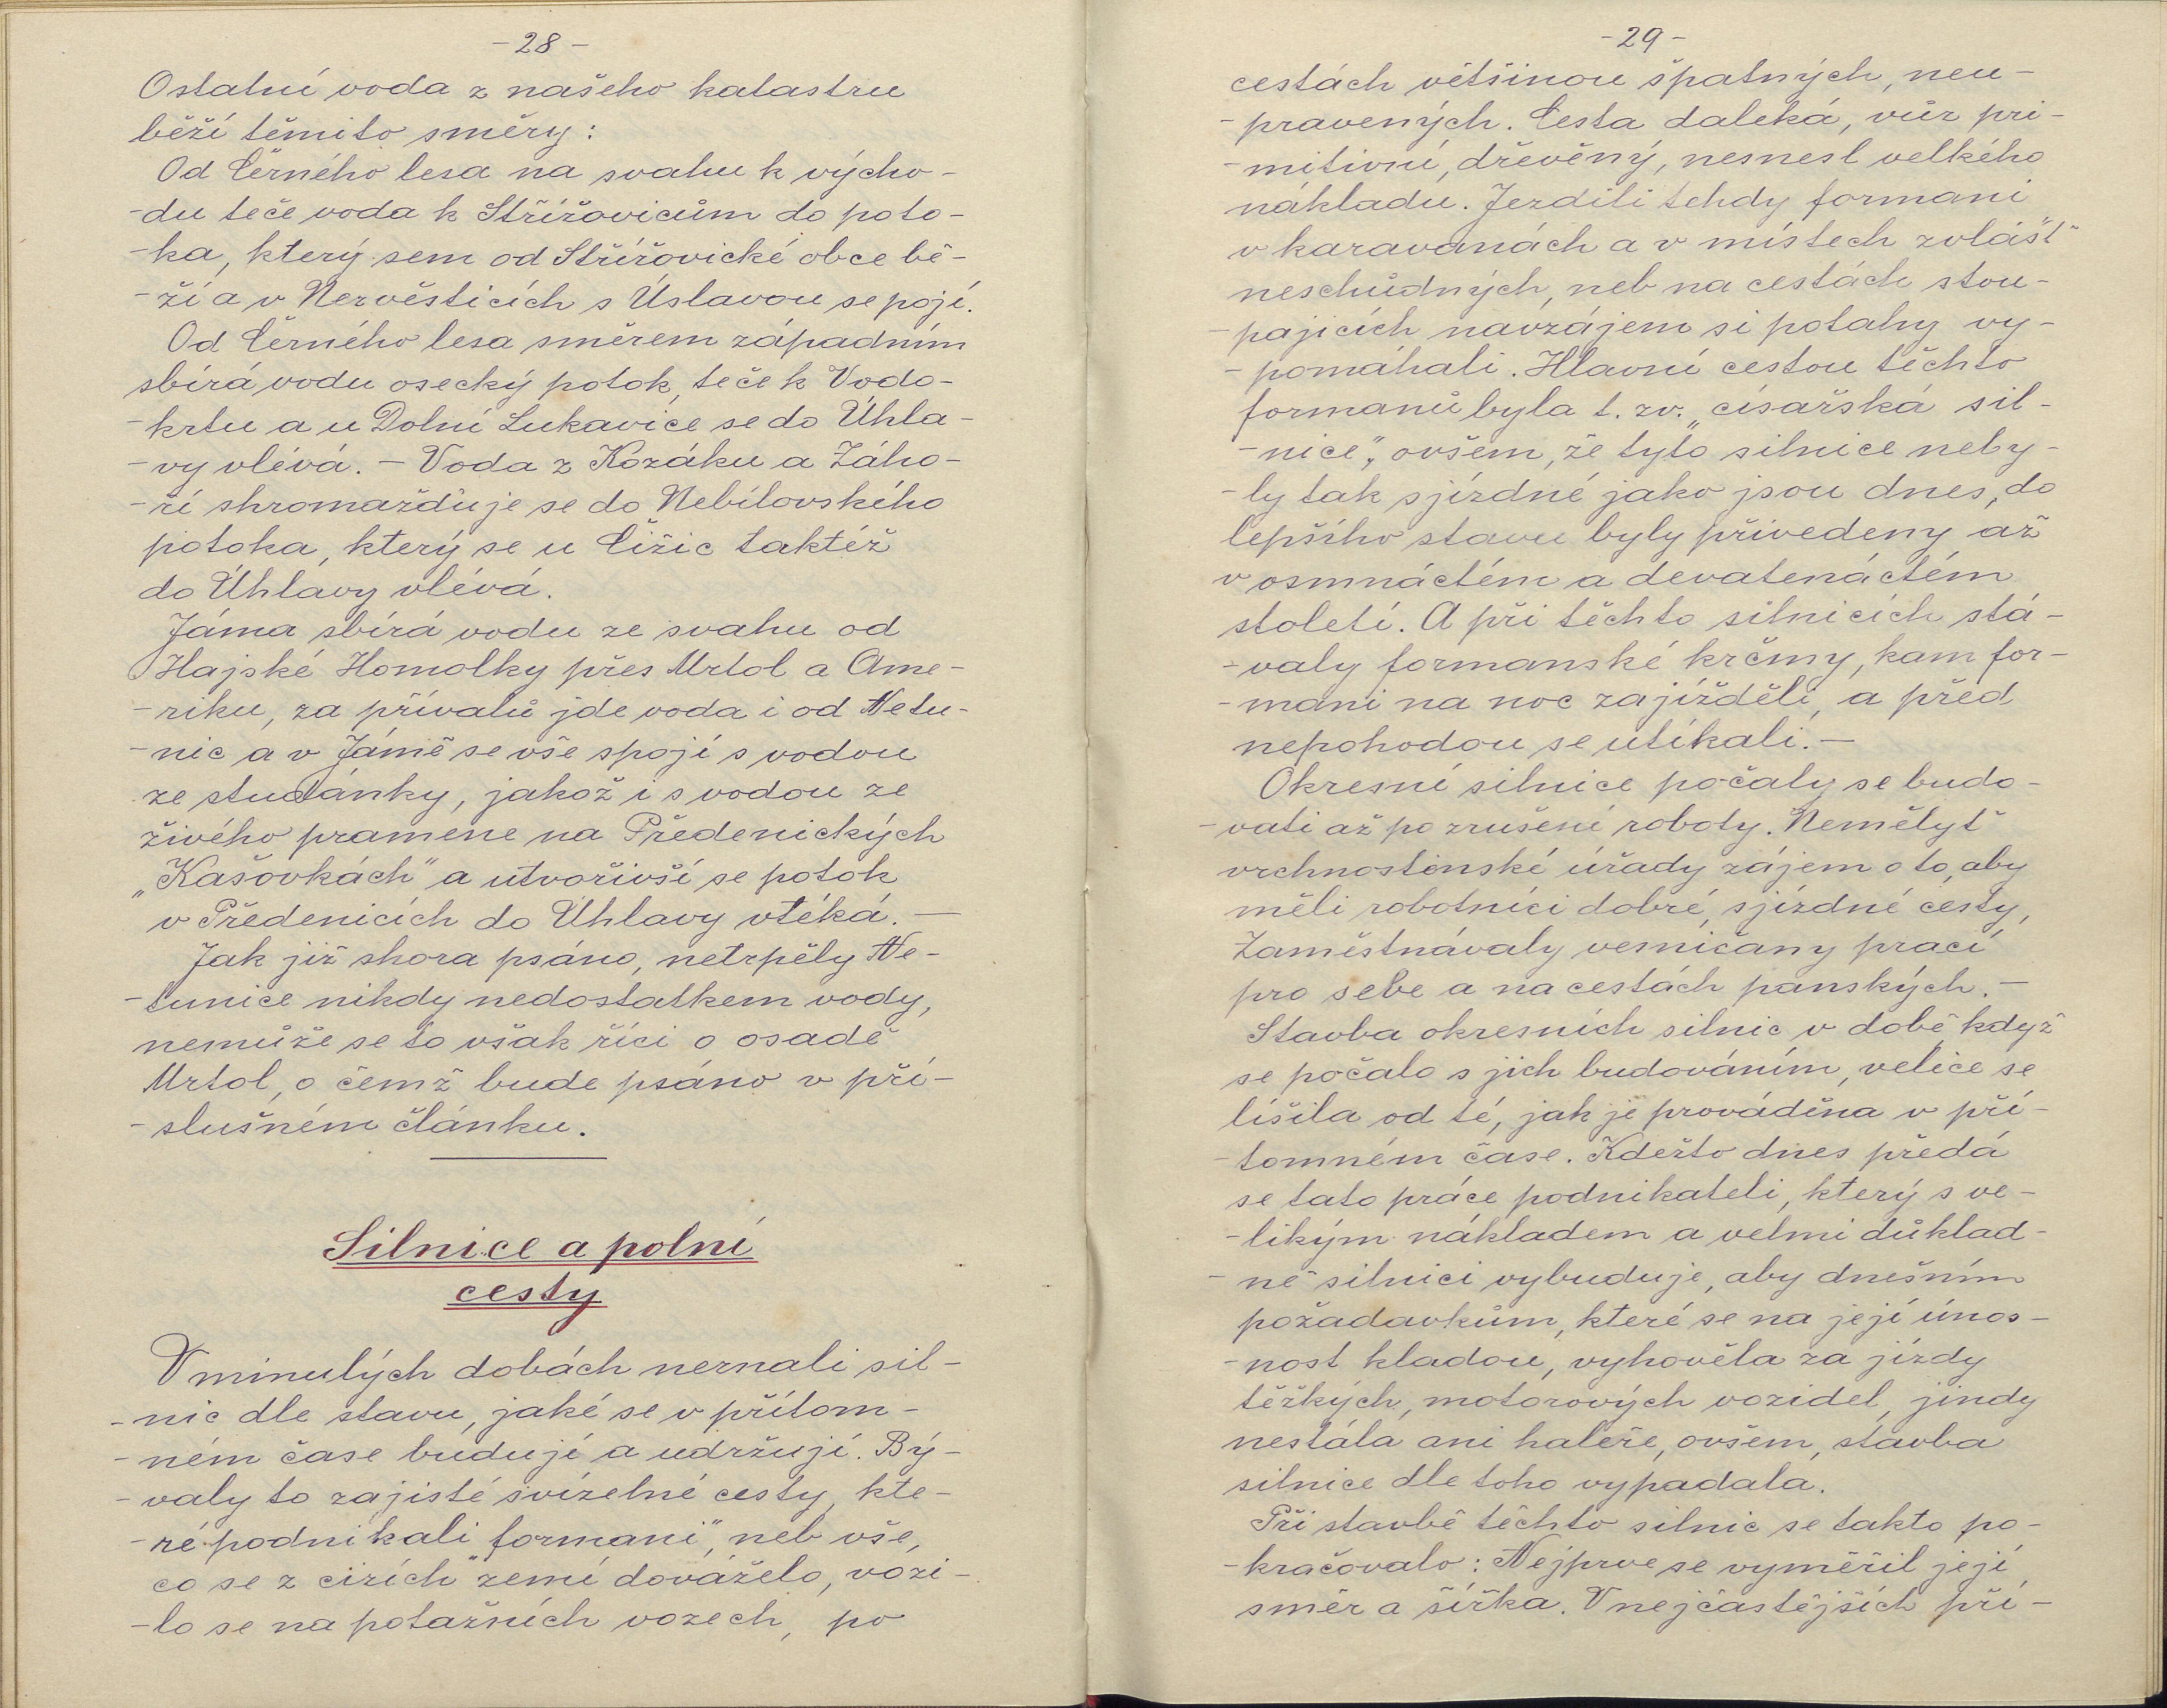 - 28 -
Ostatní voda z našeho katastru
běží těmito směry:
Od Černého lesa na svahu k výcho-
-du teče voda k Střížovicům do poto-
-ka, který sem od Střížovické obce bě-
-ží a v Nezvěsticích s Úslavou se pojí.
Od Černého lesa směrem západním
sbírá vodu osecký potok, teče k Vodo-
-krtu a u Dolní Lukavice se do Úhla-
-vy vlévá. - Voda z Kozáku a Záho-
-ří shromažďuje se do Nebílovského
potoka, který se u Čižic taktéž
do Úhlavy vlévá.
Jáma sbírá vodu ze svahu od
Hajské Homolky přes Mrtol a Ame-
-riku, za přívalů jde voda i od Netu-
-nic a v Jámě se vše spojí s vodou
ze studánky, jakož i s vodou ze
živého pramene na Předenických
„Kašovkách" a utvořivší se potok
v Předenicích do Úhlavy vtéká. -
Jak již shora psáno, netrpěly Ne-
-tunice nikdy nedostatkem vody,
nemůže se to však říci o osadě
Mrtol, o čemž bude psáno v pří-
-slušném článku.
Silnice a polní
cesty
V minulých dobách neznali sil-
-nic dle stavu, jaké se v přítom-
-ném čase budují a udržují. Bý-
-valy to zajisté svízelné cesty, kte-
-ré podnikali formani", neb vše,
co se z cizích zemí dováželo, vozi-
-lo se na potažních vozech, po
- 29 -
cestách většinou špatných, neu-
-pravených. Cesta daleká, vůz pri-
-mitivní, dřevěný, nesnesl velkého
nákladu. Jezdili tehdy formani
v karavanách a v místech zvlášť
neschůdných, neb na cestách stou-
-pajících navzájem si potahy vy-
-pomáhali. Hlavní cestou těchto
formanů byla t. zv. „císařská sil-
-nice", ovšem, že tyto silnice neby-
-ly tak sjízdné jako jsou dnes, do
lepšího stavu byly přivedeny až
v osmnáctém a devatenáctém
století. A při těchto silnicích stá-
-valy formanské krčmy, kam for-
-mani na noc zajížděli, a před
nepohodou se utíkali. -
Okresní silnice počaly se budo-
-vati až po zrušení roboty. Nemělyť
vrchnostenské úřady zájem o to, aby
měli robotníci dobré, sjízdné cesty,
Zaměstnávaly vesničany prací
pro sebe a na cestách panských. -
Stavba okresních silnic v době když
se počalo s jich budováním, velice se
lišila od té, jak je prováděna v pří-
-tomném čase. Kdežto dnes předá
se tato práce podnikateli, který s ve-
-likým nákladem a velmi důklad-
-ně silnici vybuduje, aby dnešním
požadavkům, které se na její únos-
-nost kladou, vyhověla za jízdy
těžkých, motorových vozidel, jindy
nestála ani haléře, ovšem, stavba
silnice dle toho vypadala.
Při stavbě těchto silnic se takto po-
-kračovalo: Nejprve se vyměřil její
směr a šířka. V nejčastějších pří-